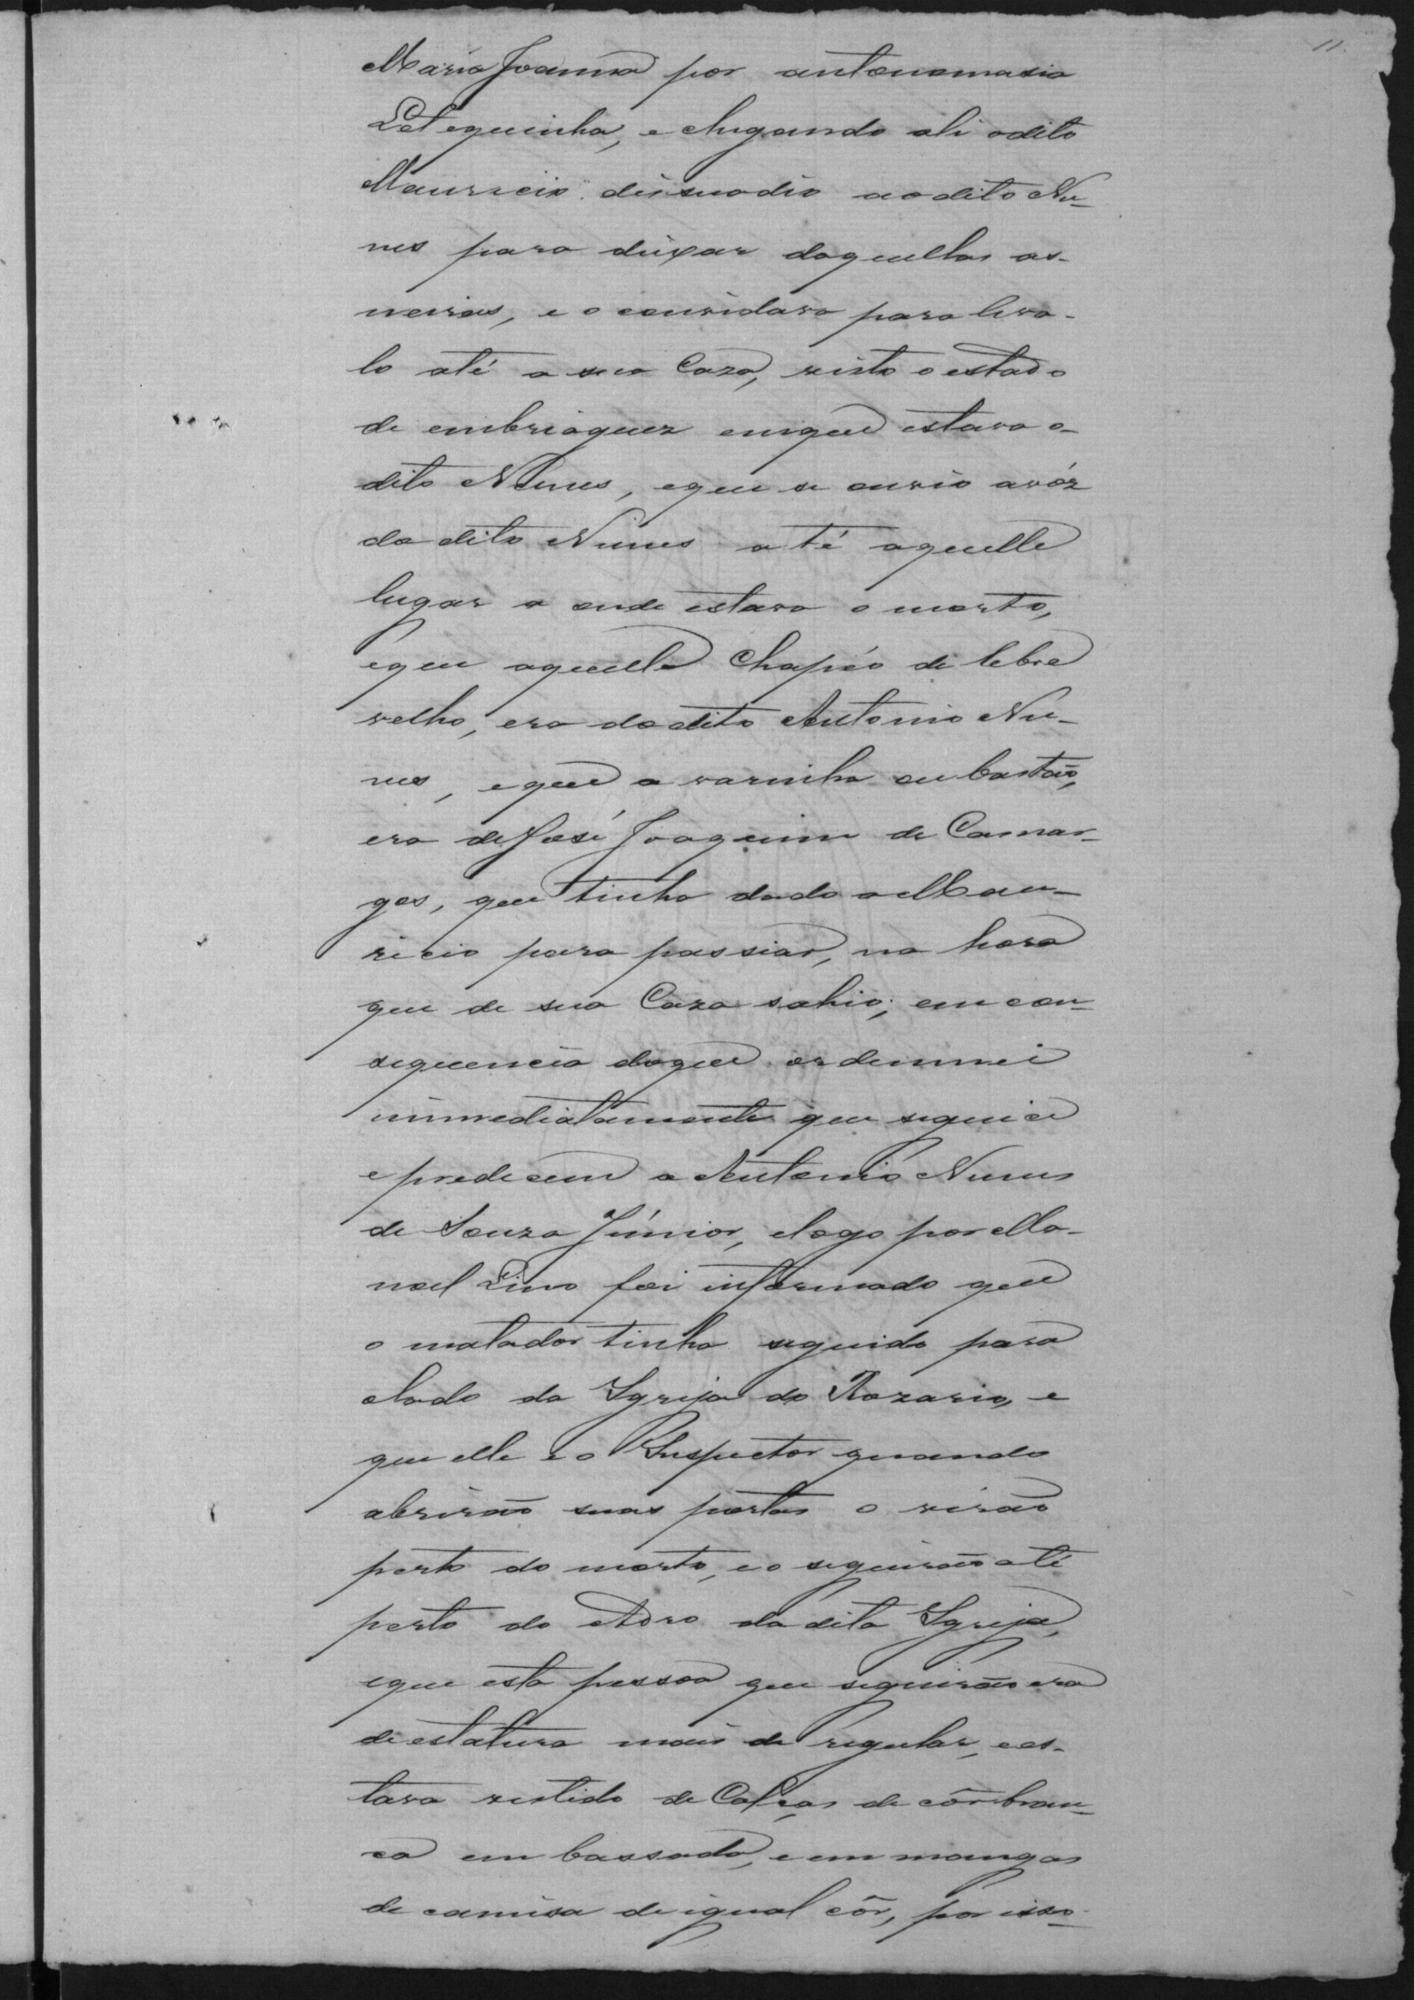 11.
Maria Joanna por antonomasia
Petequinha, e chegando ahi odito
Mauricio dissuadio aodito Nu-
nes para deixar daquellas as-
neiras, e o convidava para leva-
lo até a sua Caza, visto o estado
de embriaguez emque estava o-
dito Nunes, eque se ouvio avóz
do dito Nunes até aquelle
lugar a onde estava o morto,
eque aquelle Chapéo de lebre
velho, era dodito Antonio Nu-
nes, eque a varinha ou bastão,
era deJosé Joaquim de Camar-
gos, que tinha dado a Mau-
ricio para passiar, na hora
que de sua Caza sahio; em con-
sequencia doque ordennei
immediatamente que seguice
e predecem a Antonio Nunes
de Souza Júnior, elogo por Ma-
noel Lino foi informado que
o matador tinha seguido para
olado da Igreja do Rozario, e
que elle e o Inspector quando
abrirão suas portas o virão
perto do morto, e o seguirão até
perto do Adro da dita Igreja,
eque esta pessoa que seguirão era
de estatura mais de regular, ees-
tava vestido de Calças de côr bran-
ca em bassada, e em mangas
de camisa de igual côr, por isso-